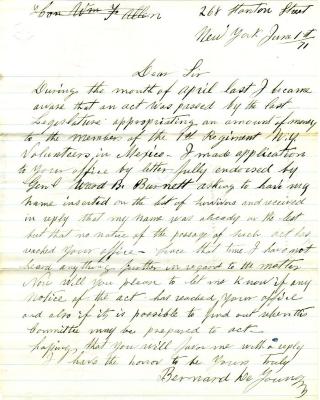 Con Wm F Allen 268 Stanton Street
New York June 1st /71
Dear Sir
During the month of April last I became
aware that an act was passed by the last
Legislature appropriating an amount of money
to the member of the 1st Regiment N.Y
Volunteers in Mexico - I made application
to Your office by letter fully endorsed by
Genl Ward B. Burnett asking to have my
name inserted on the list of survivors and received
in reply that my name was already on the list
but that no notice of the passage of such act has
reached Your office - Since that time I have not
heard anything further in regard to the matter
Now will you please to let me know if any
notice of the act has reached Your office
and also if it is possible to find out when the
Committee may be prepared to act
hoping that you will favor me with a reply
I have the honor to be Yours truly
Bernard De Young